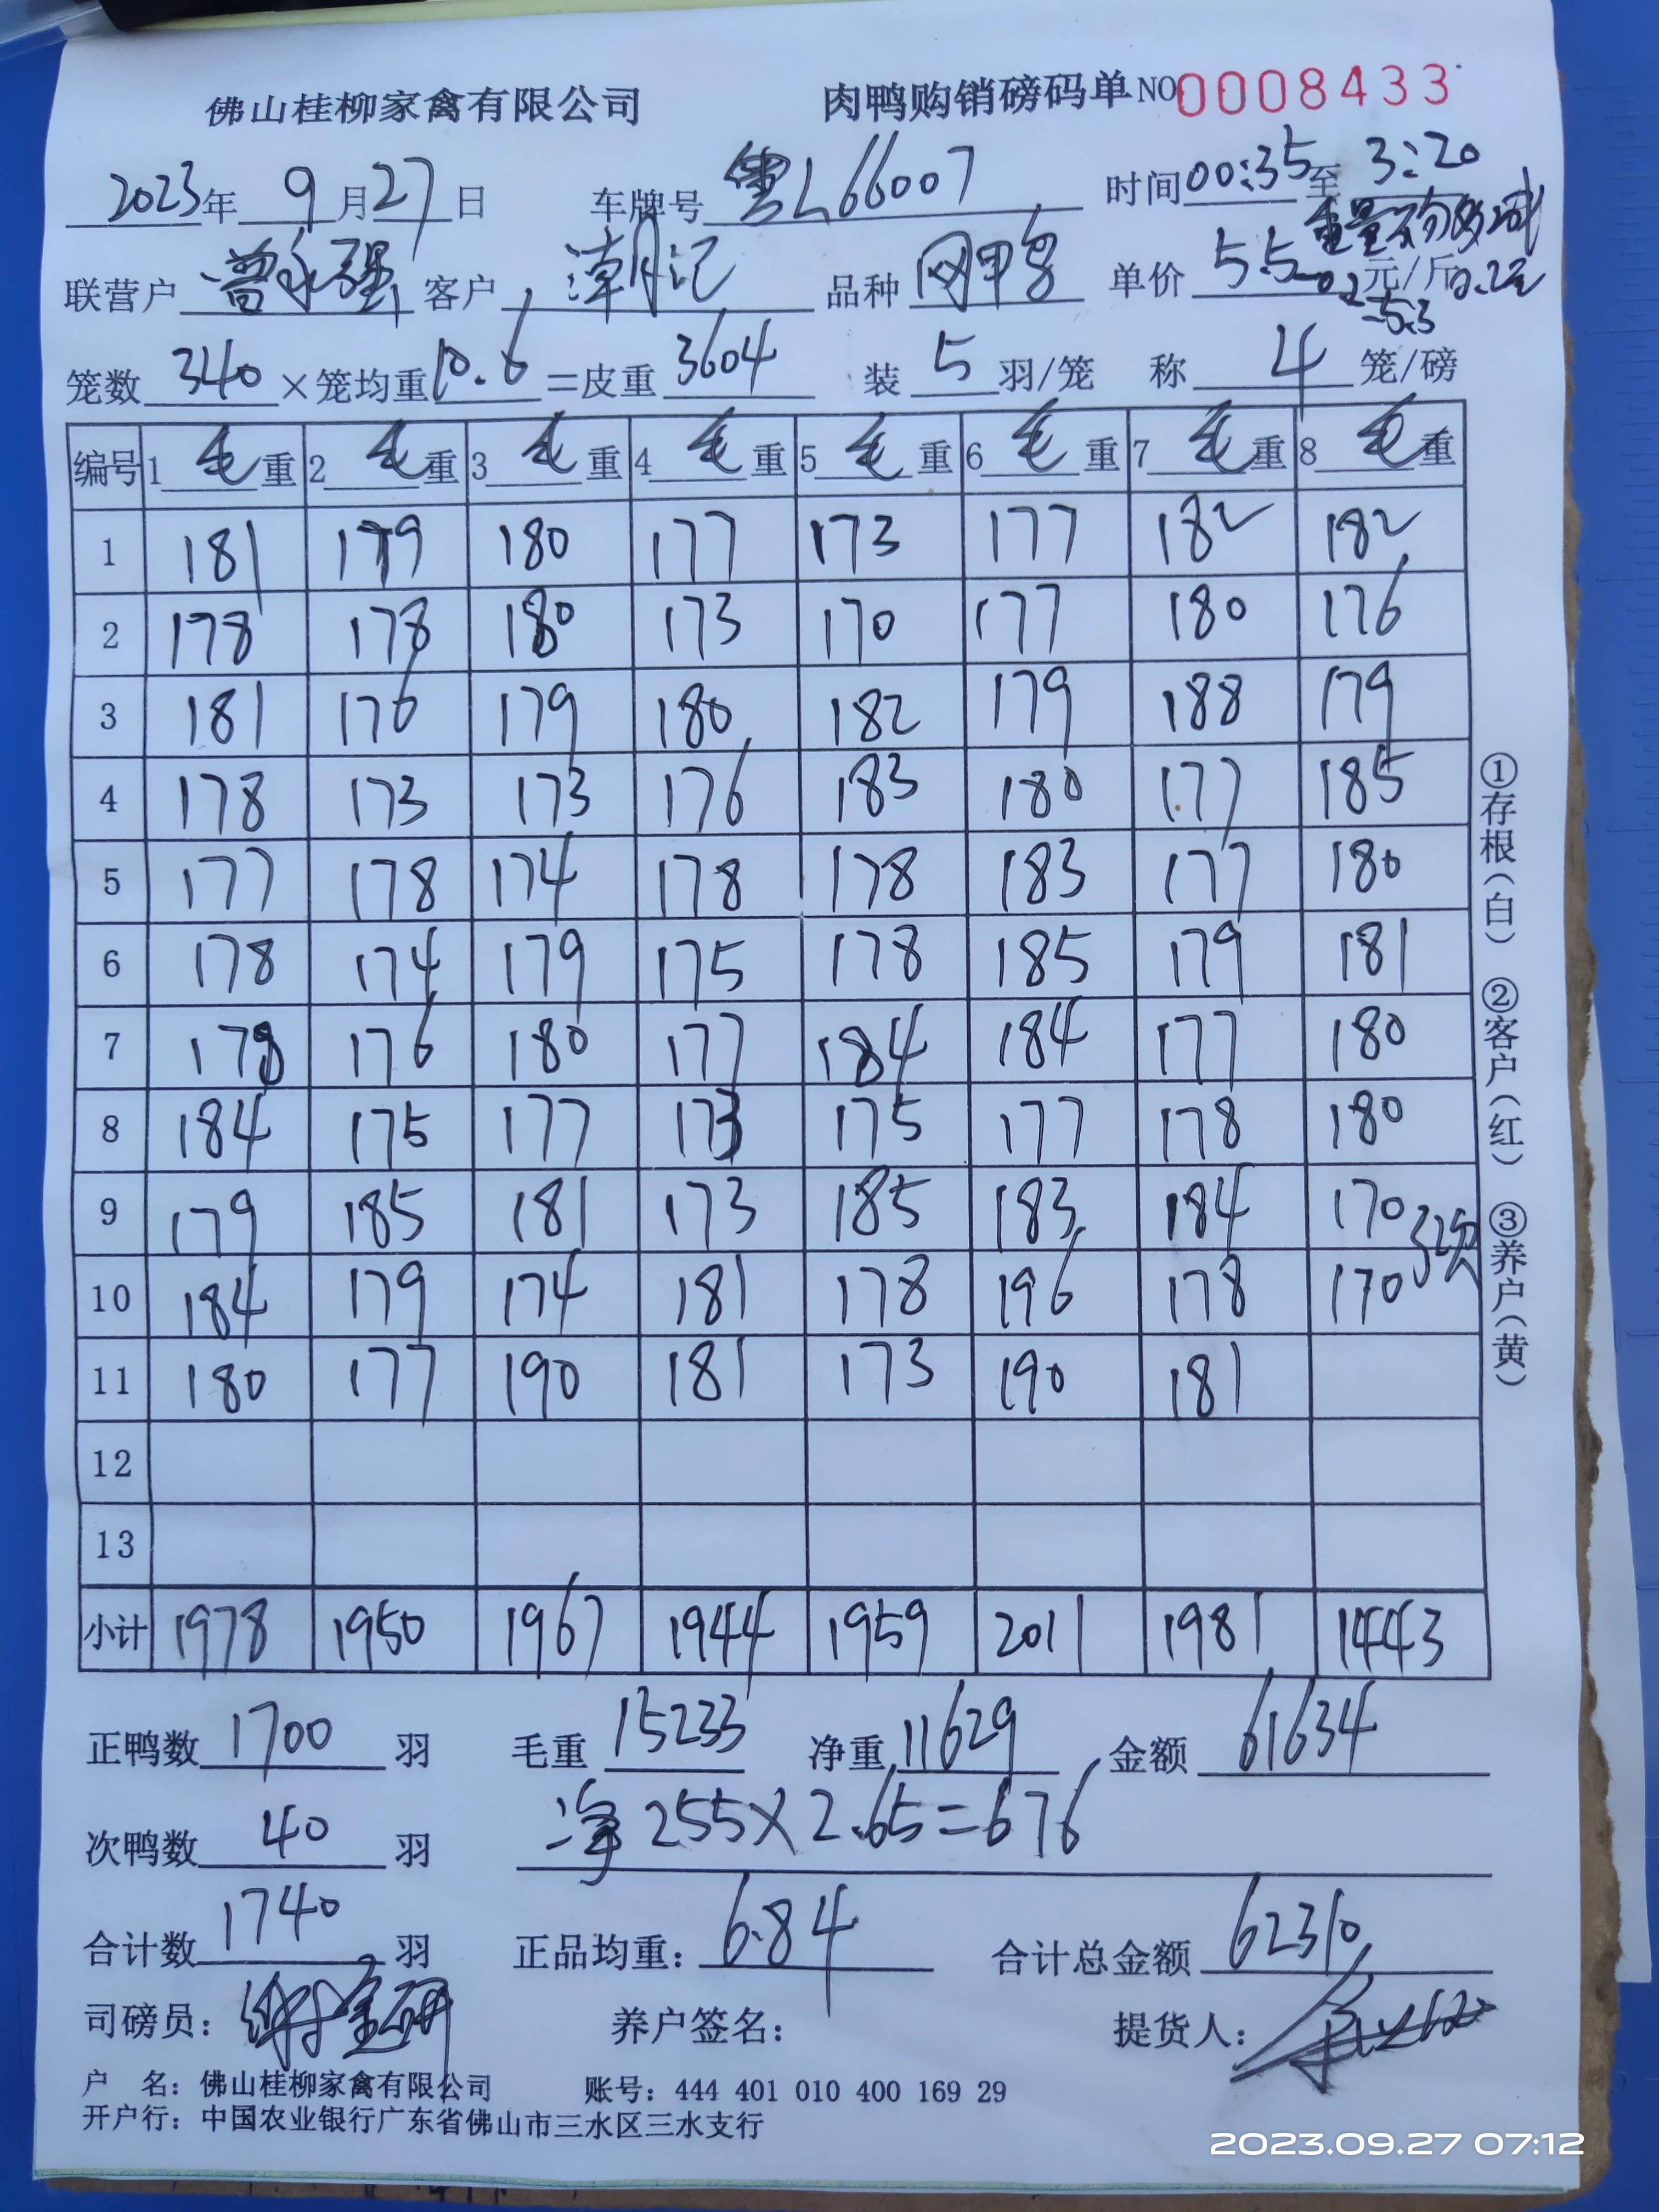 佛山桂柳家禽有限公司 肉鸭购销磅码单 NO 0008433
2023年 9月27日 车牌号 粤L66007 时间00:35至 3:20
重量不够减
联营户 曾永强 客户 潮记 品种 网甲 单价 5.5-0.2 元/斤 0.2元
=5.3
笼数 340 ×笼均重 10.6 =皮重 3604 装 5 羽/笼 称 4 笼/磅
编号 1 毛重 2 毛重 3 毛重 4 毛重 5 毛重 6 毛重 7 毛重 8 毛重
1 181 179 180 177 173 177 182 182
2 178 178 180 173 170 177 180 176
3 181 176 179 180 182 179 188 179
4 178 173 173 176 183 180 177 185
5 177 178 174 178 178 183 177 180
6 178 174 179 175 178 185 179 181
7 178 176 180 177 184 184 177 180
8 184 175 177 173 175 177 178 180
9 179 185 181 173 185 183 184 170
10 184 179 174 181 178 196 178 170 次
11 180 177 190 181 173 190 181
12
13
小计 1978 1950 1967 1944 1959 2011 1981 1443
正鸭数 1700 羽 毛重 15233 净重 11629 金额 61634
次鸭数 40 羽 净 255×2.65=676
合计数 1740 羽 正品均重: 6.84 合计总金额 62310
司磅员: 养户签名: 提货人:
户 名: 佛山桂柳家禽有限公司 账号: 444 401 010 400 169 29
开户行: 中国农业银行广东省佛山市三水区三水支行
①存根(白) ②客户(红) ③养户(黄)
2023.09.27 07:12